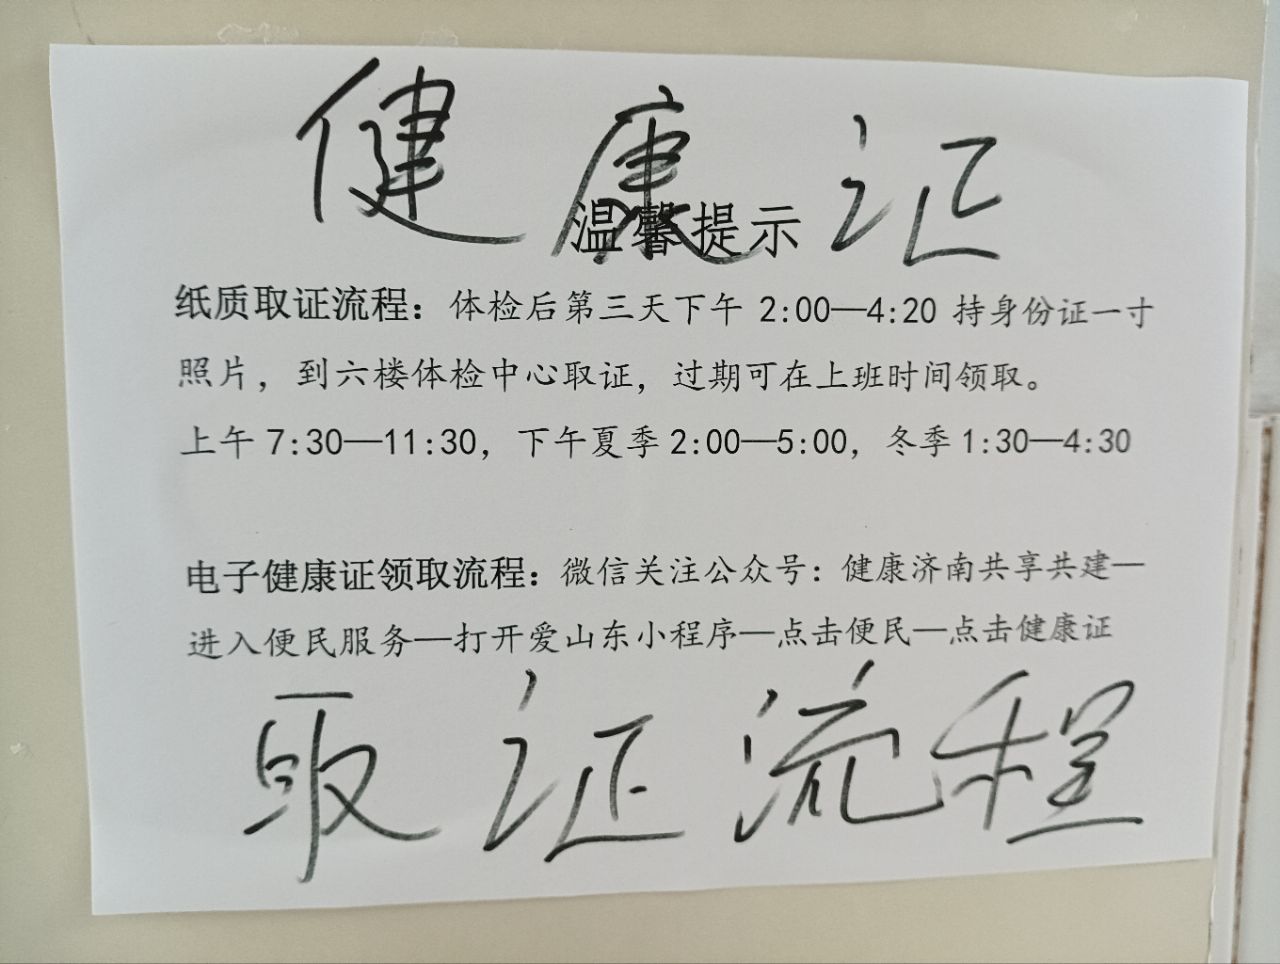 健康证
温馨提示
纸质取证流程：体检后第三天下午 2:00—4:20 持身份证一寸
照片，到六楼体检中心取证，过期可在上班时间领取。
上午 7:30—11:30，下午夏季 2:00—5:00，冬季 1:30—4:30
电子健康证领取流程：微信关注公众号：健康济南共享共建—
进入便民服务—打开爱山东小程序—点击便民—点击健康证
取证流程